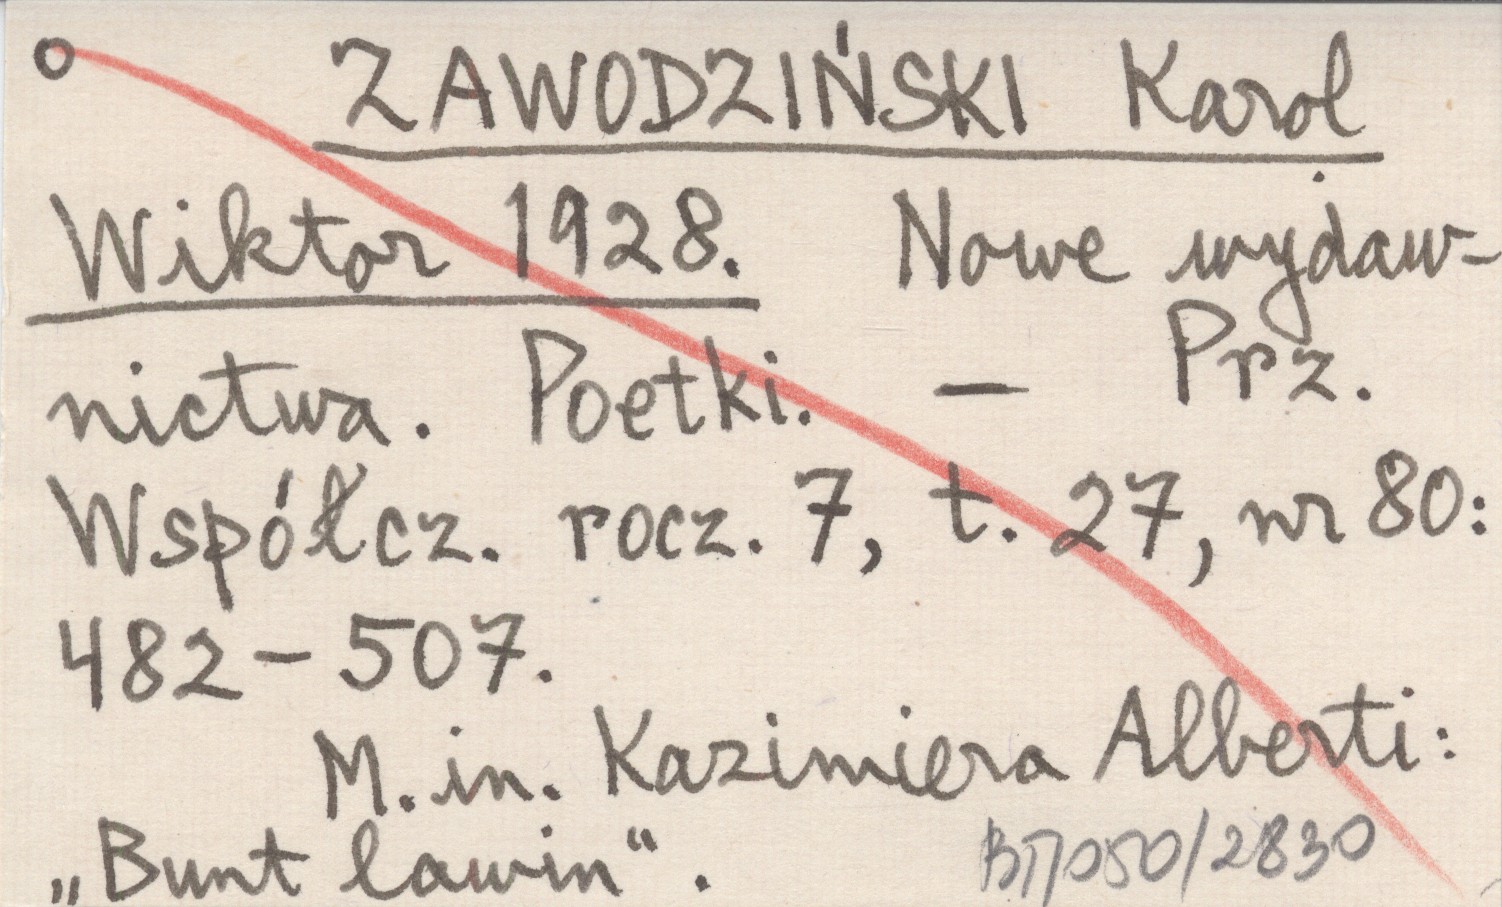 ZAWODZIŃSKI Karol
Wiktor 1928. Nowe wydaw-
nictwa. Poetki. – Prz.
Współcz. rocz. 7, t. 27, nr 80:
482–507.
M.in. Kazimiera Alberti:
„Bunt lawin“.
050/2830